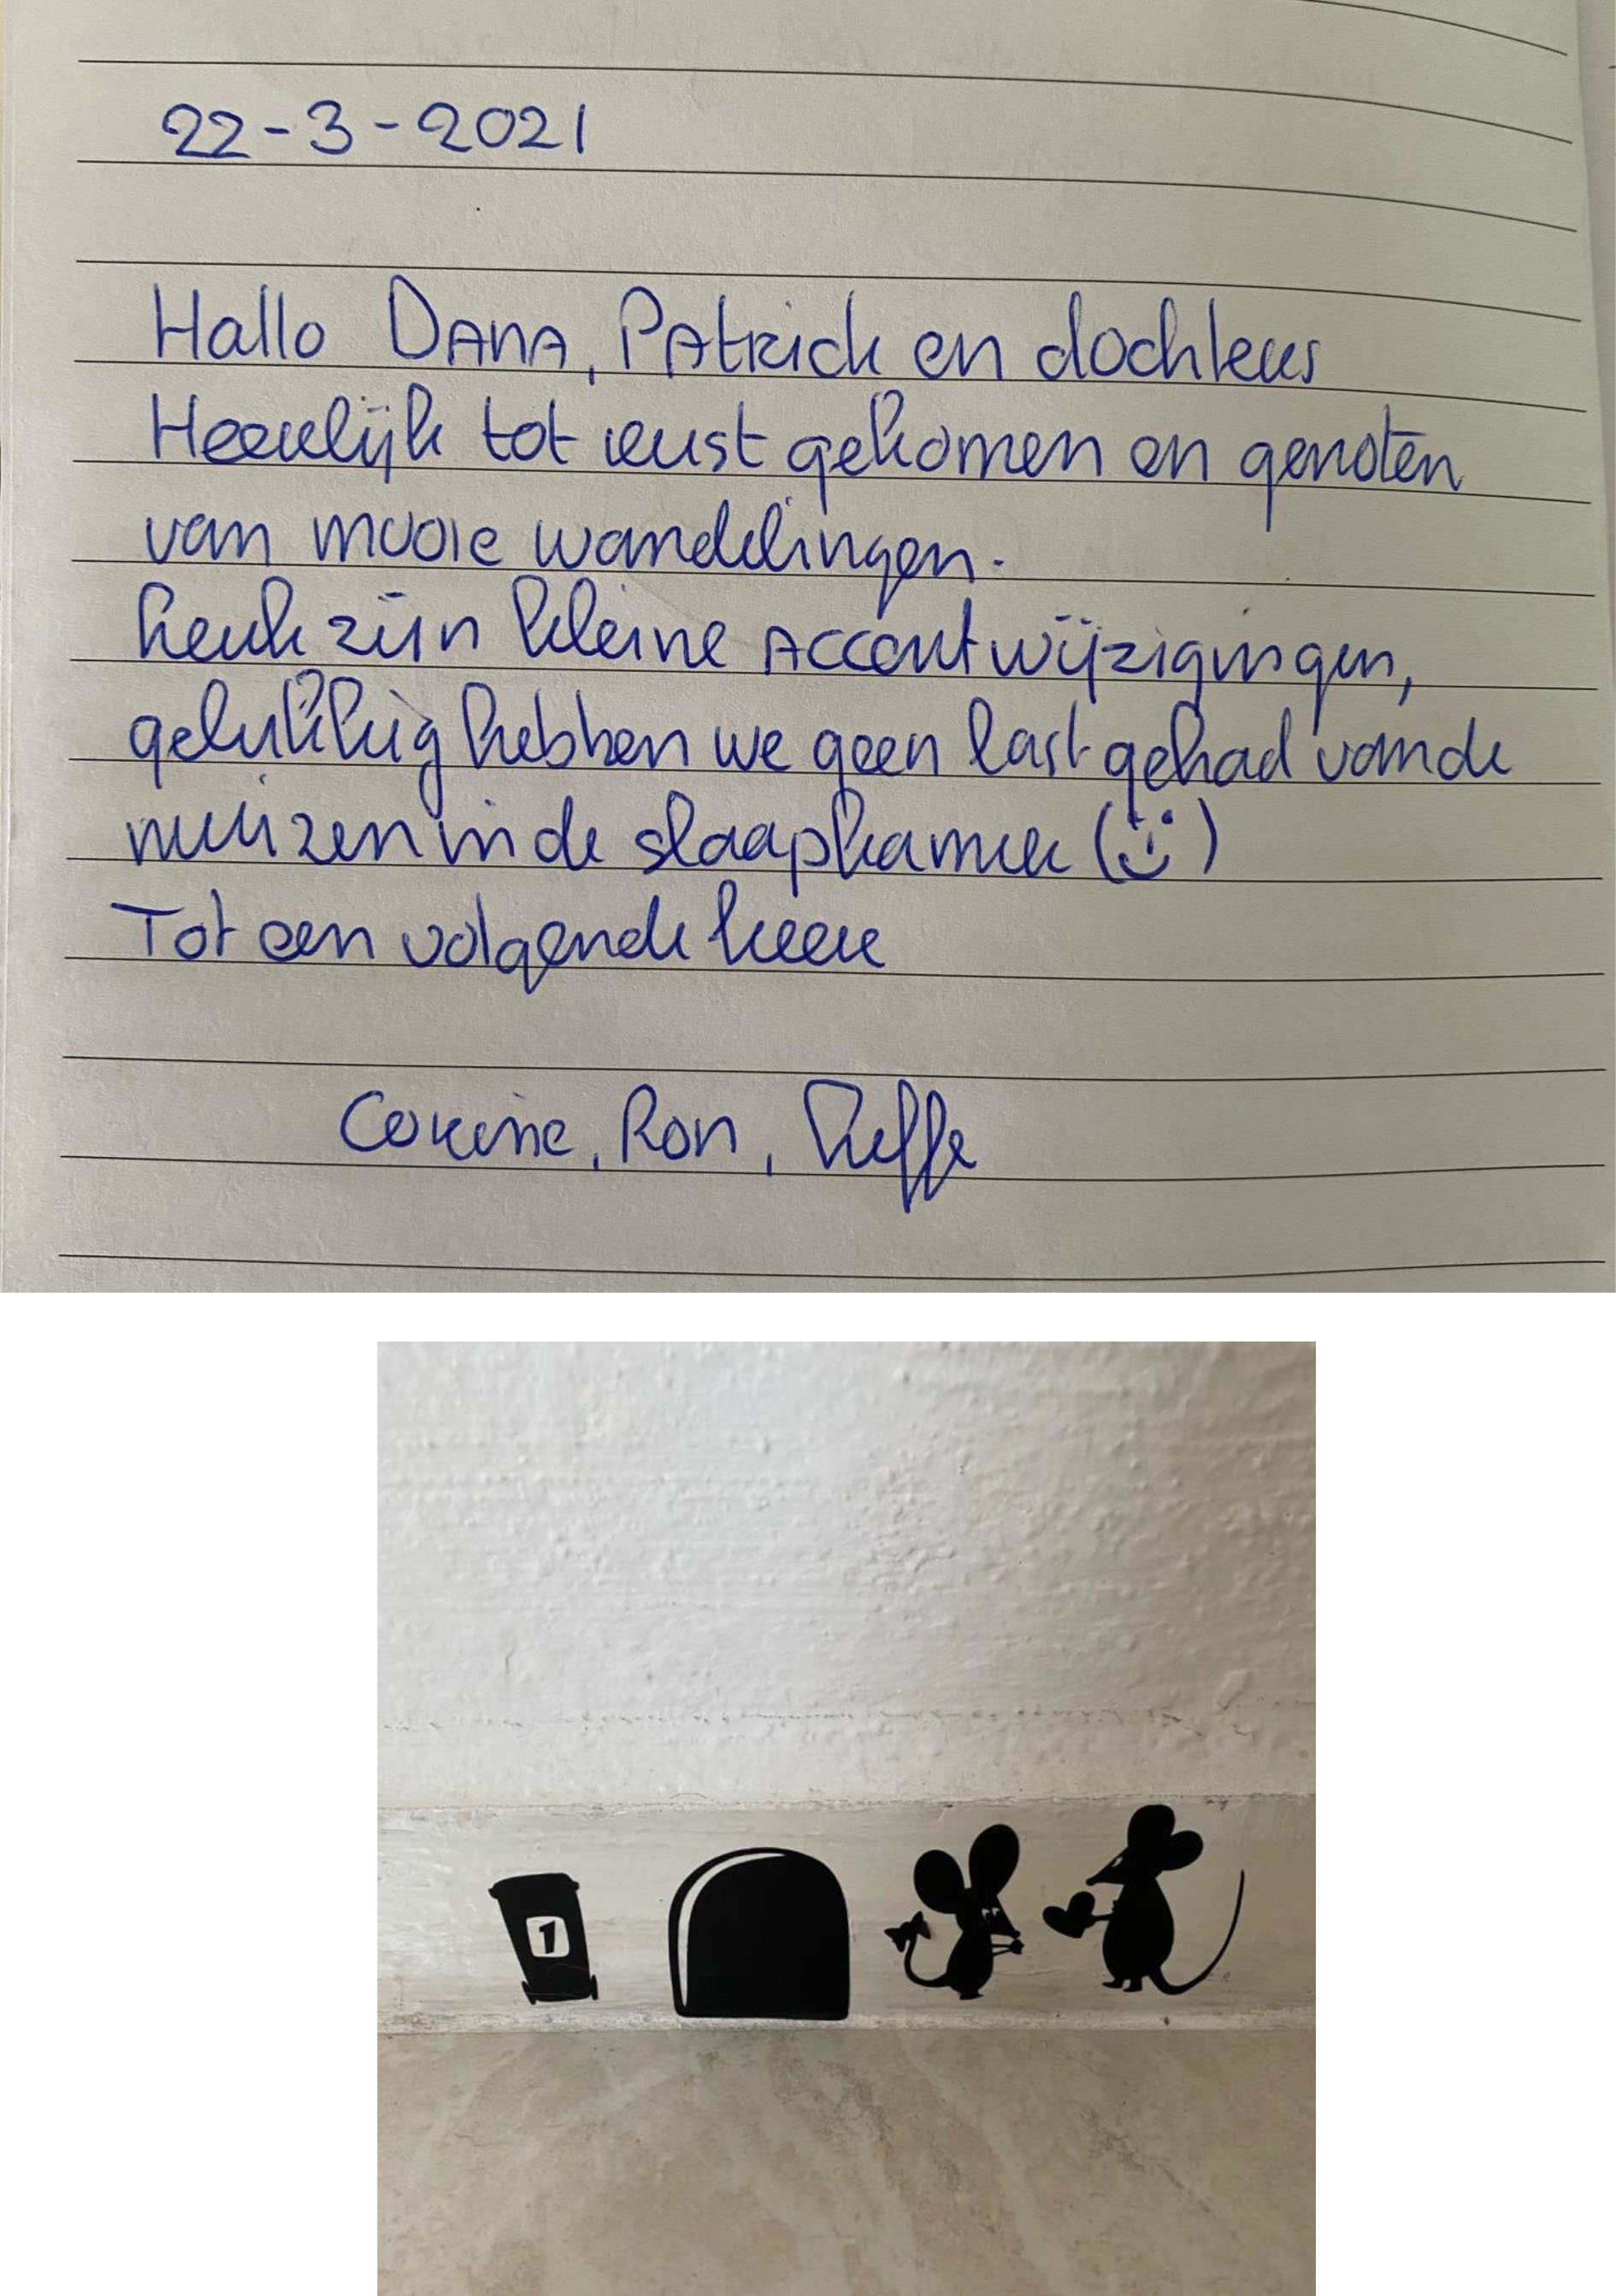 22-3-2021
Hallo Dana, Patrick en dochters
Heerlijk tot rust gekomen en genoten
van mooie wandelingen.
Leuk zijn kleine accentwijzigingen,
gelukkig hebben we geen last gehad van de
muizen in de slaapkamer (☺)
Tot een volgende keer
Corine, Ron,
1